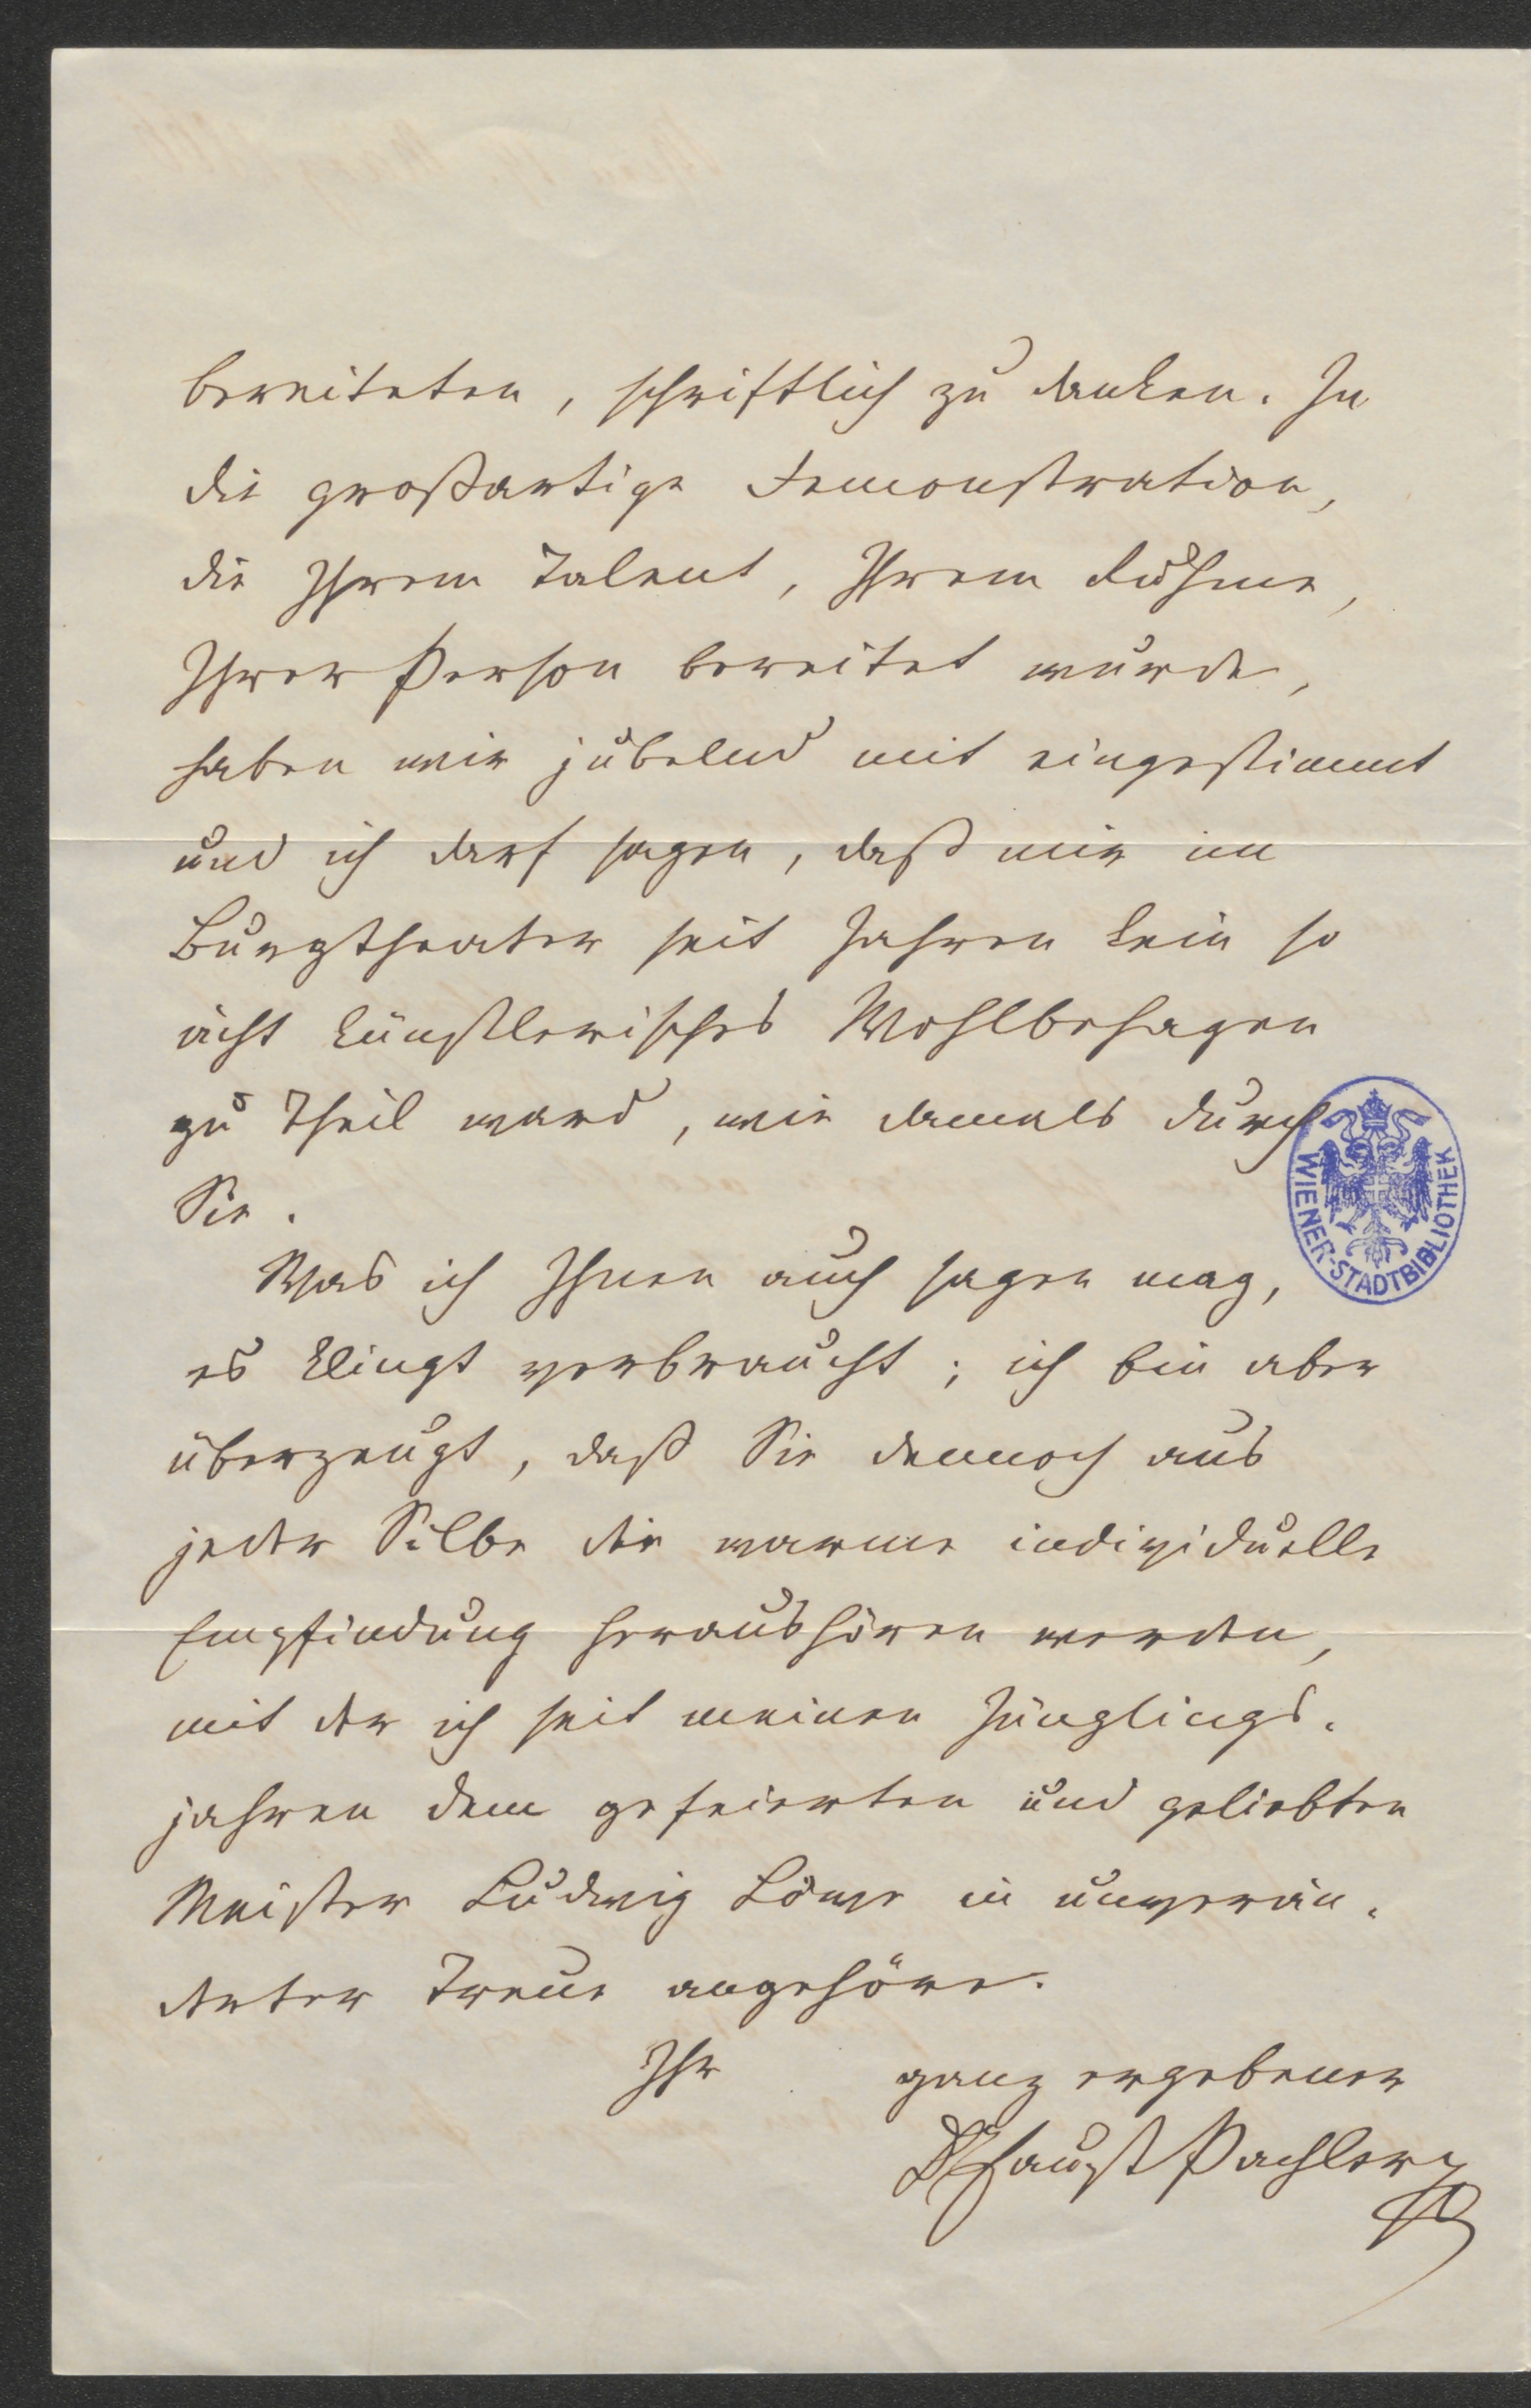 bereiteten, schriftlich zu danken. In
die großartige Demonstration,
die Ihrem Talent, Ihrem Ruhme,
Ihrer Person bereitet wurde,
haben wir jubelnd mit eingestimmt
und ich darf sagen, daß mir im
Burgtheater seit Jahren kein so
ächt künstlerisches Wohlbehagen
zu Theil ward, wie damals durch
Sie.
Was ich Ihnen auch sagen mag,
es klingt verbraucht; ich bin aber
überzeugt, daß Sie dennoch aus
jeder Silbe die warme individuelle
Empfindung heraushören werden,
mit der ich seit meinen Jünglings-
jahren dem gefeierten und geliebten
Meister Ludwig Löwe in unverän-
derter Treue angehöre.
Ihr ganz ergebener
Dr Faust Pachler
WIENER-STADTBIBLIOTHEK